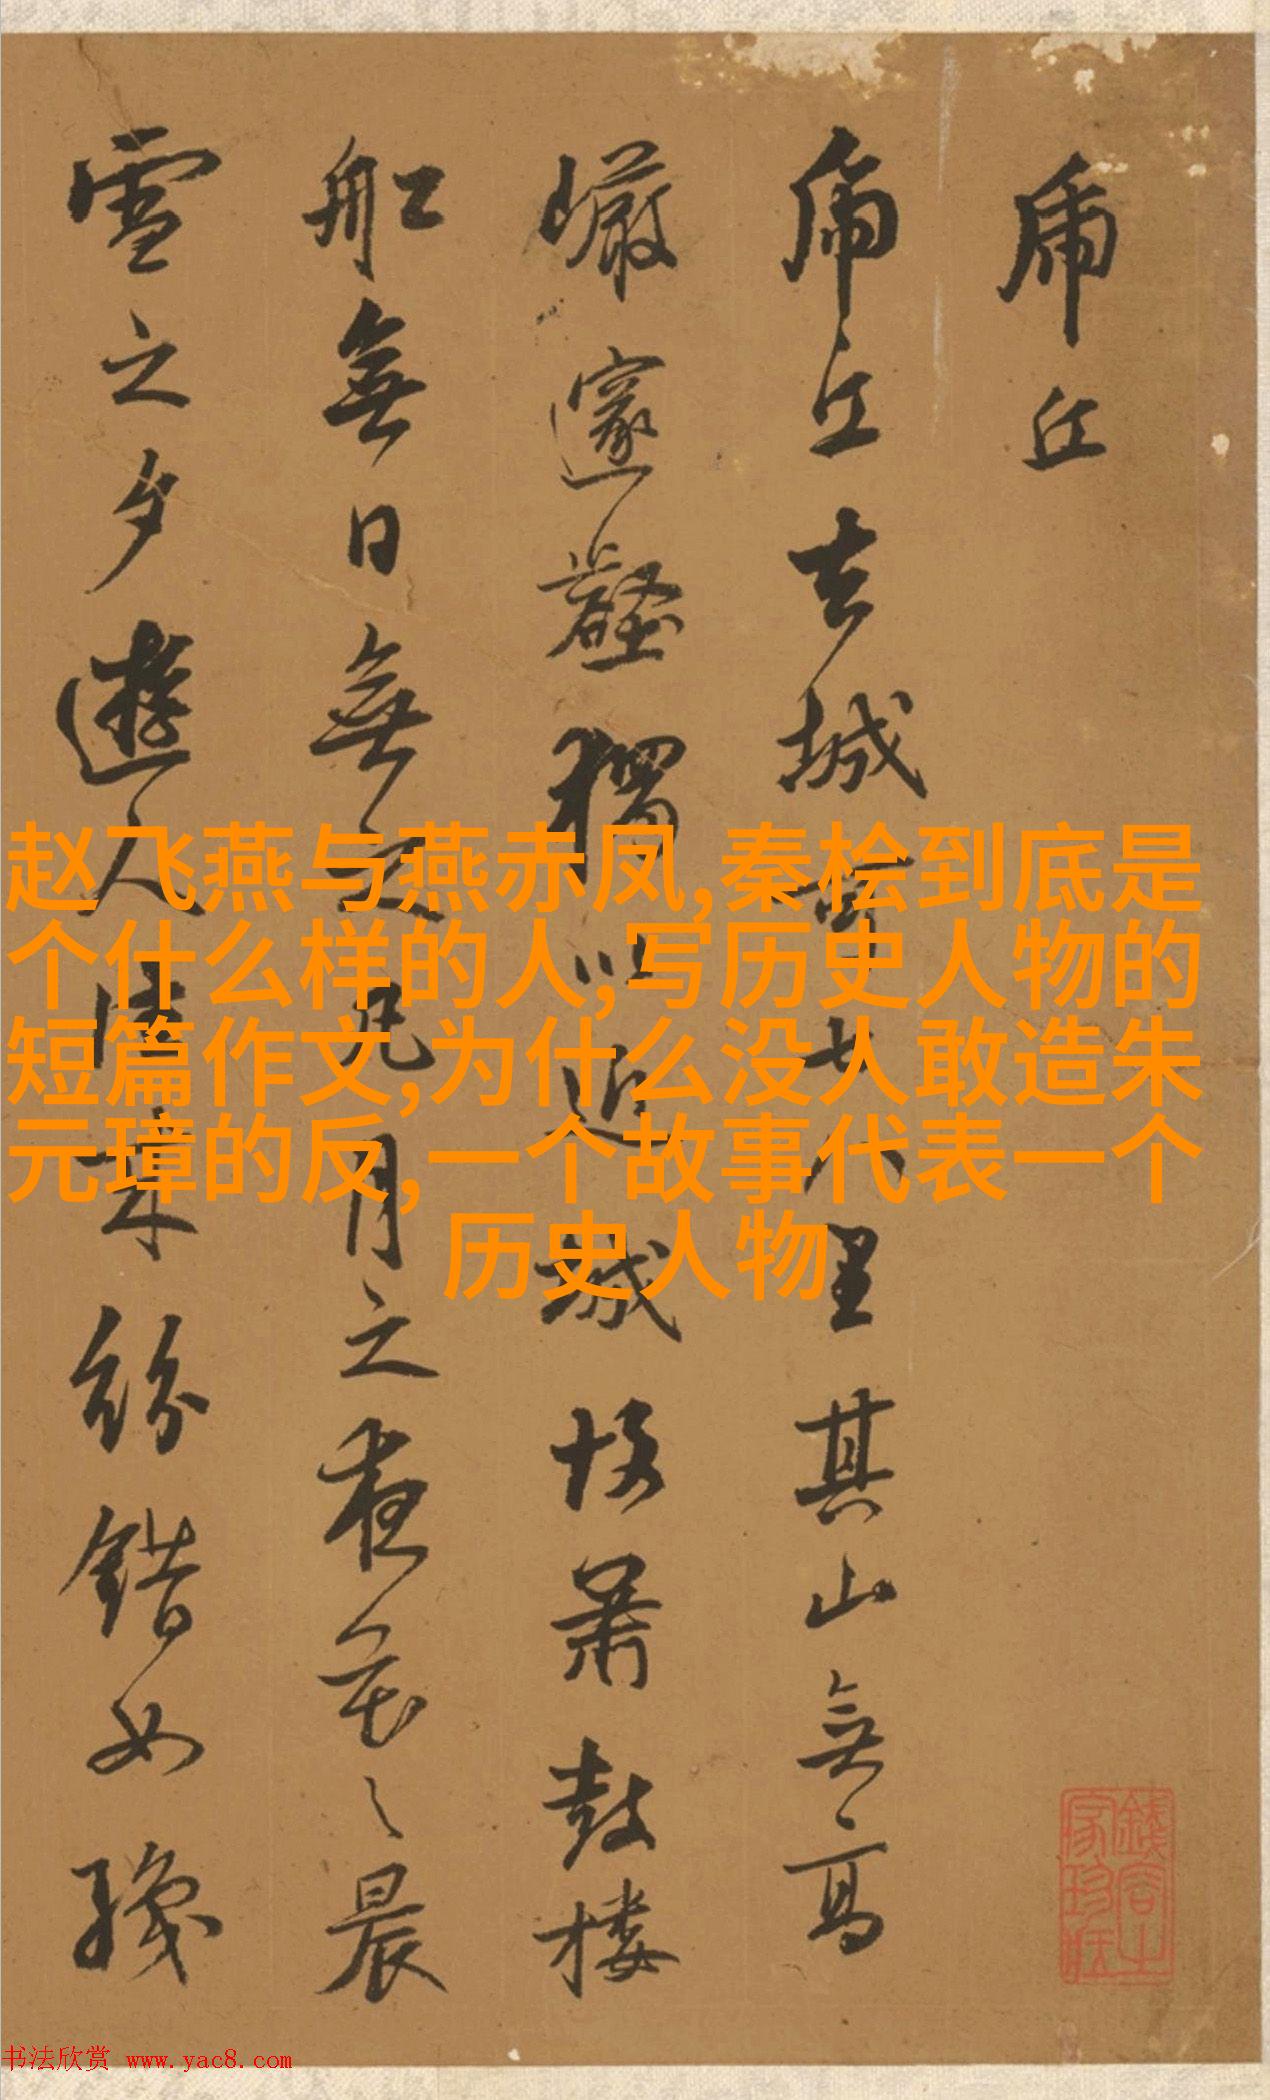 虎丘
虎丘去城可七八里其山無高
巖邃壑獨以近城故簫鼓樓
船無日無之凡月之夜花之晨
雪之夕遊人往來紛錯如織
赵飞燕与燕赤凤,秦桧到底是
个什么样的人,写历史人物的
短篇作文,为什么没人敢造朱
元璋的反,一个故事代表一个
历史人物
书法欣赏 www.yac8.com